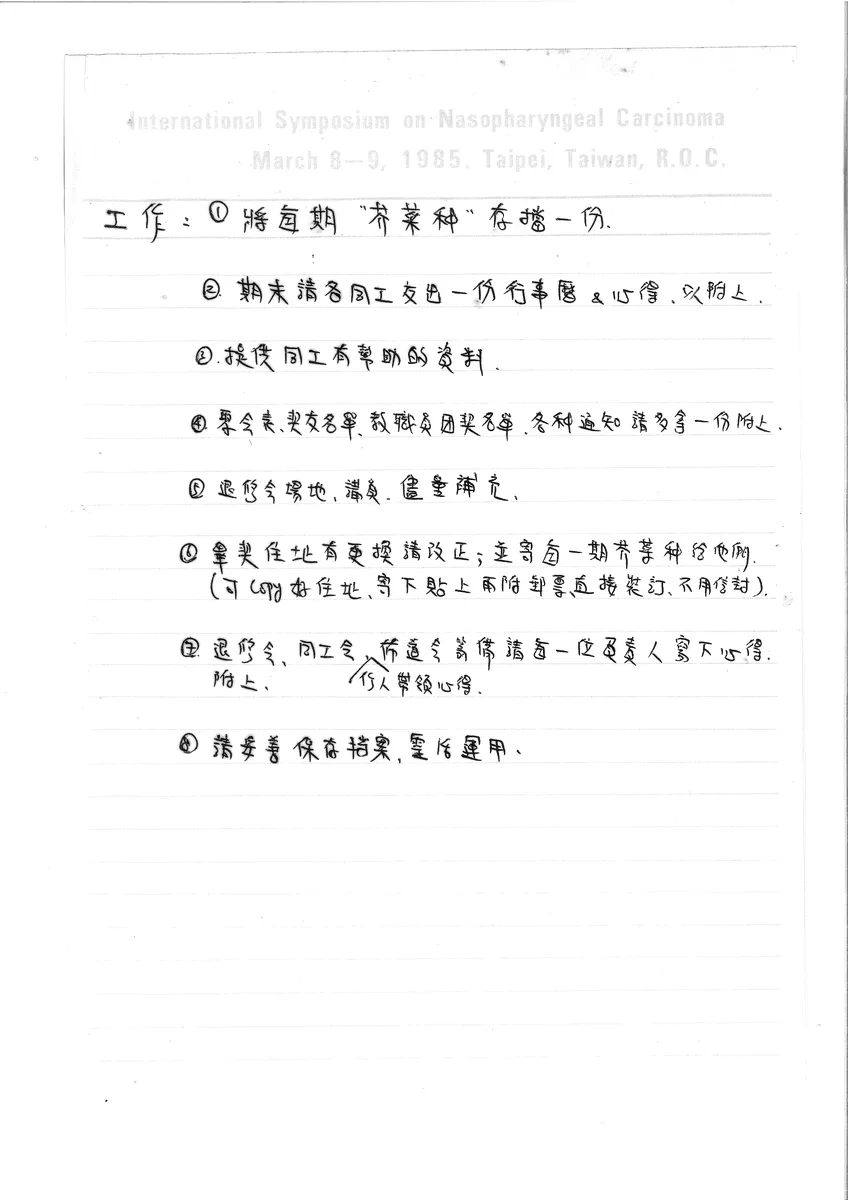 International Symposium on Nasopharyngeal Carcinoma
March 8—9, 1985. Taipei, Taiwan, R.O.C.
工作：① 將每期 "芥菜种" 存擋一份.
②. 期末請各同工交出一份行事曆 & 心得、以附上.
③. 提供同工有幫助的資料.
④. 聚会表、契友名單、教職員团契名單、各种通知 請多拿一份附上.
⑤ 退修会場地、講員. 儘量補充、
⑥ 畢契住址有更換請改正; 並寄每一期芥菜种给他們.
(可 Copy 好住址、寄下貼上而附郵票直接裝訂、不用信封).
⑦. 退修会、同工会、佈道会籌備請每一位負責人寫下心得.
附上、 行人帶領心得.
⑧ 請妥善 保存档案、靈活運用、